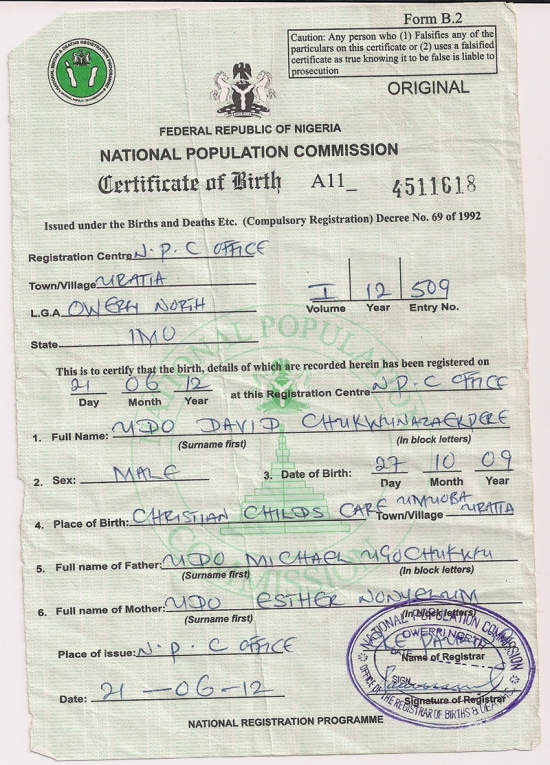 Form B.2
Caution: Any person who (1) Falsifies any of the
particulars on this certificate or (2) uses a falsified
certificate as true knowing it to be false is liable to
prosecution
ORIGINAL
FEDERAL REPUBLIC OF NIGERIA
NATIONAL POPULATION COMMISSION
Certificate of Birth A11_ 4511618
Issued under the Births and Deaths Etc. (Compulsory Registration) Decree No. 69 of 1992
Registration Centre N.P.C OFFICE
Town/Village URATTA
L.G.A OWERRI NORTH
I 12 509
Volume Year Entry No.
State IMO
NATIONAL POPULATION COMMISSION
This is to certify that the birth, details of which are recorded herein has been registered on
21 06 12 at this Registration Centre N.P.C OFFICE
Day Month Year
1. Full Name: UDO DAVID CHUKWUNAZAEKPERE
(Surname first) (In block letters)
2. Sex: MALE 3. Date of Birth: 27 10 09
Day Month Year
4. Place of Birth: CHRISTIAN CHILDS CARE Town/Village UMUOBA URATTA
5. Full name of Father: UDO MICHAEL UGOCHUKWU
(Surname first) (In block letters)
6. Full name of Mother: UDO ESTHER NONYELUM
(Surname first) (In block letters)
Place of issue: N.P.C OFFICE
Name of Registrar
Date: 21-06-12
Signature of Registrar
NATIONAL POPULATION COMMISSION
OWERRI NORTH
DATE
SIGN
OFFICE OF THE REGISTRAR OF BIRTHS &
NATIONAL REGISTRATION PROGRAMME